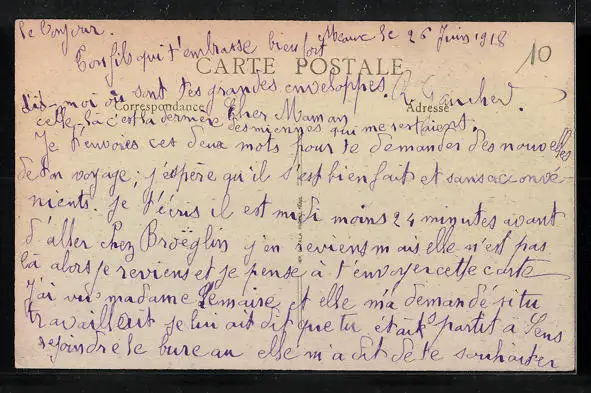 le bonjour.
Ton fils qui t'embrasse bien fort
Meaux le 26 Juin 1918
10
CARTE POSTALE
dis-moi où sont tes grandes enveloppes. R. Gaucher.
Correspondance
Adresse
celle-là c'est la dernière des miennes qui me restaient.
Cher Maman
Je t'envoies ces deux mots pour te demander des nouvelles
de ton voyage; j'espère qu'il s'est bien fait et sans acconvé-
nients. Je t'écris il est midi moins 24 minutes avant
d'aller chez Broëglin j'en reviens mais elle n'est pas
là alors je reviens et je pense à t'envoyer cette carte
J'ai vu madame Lemaire et elle m'a demandé si tu
travaillerit je lui ait dit que tu était partit à Sens
rejoindre le bureau elle m'a dit de te souhaiter